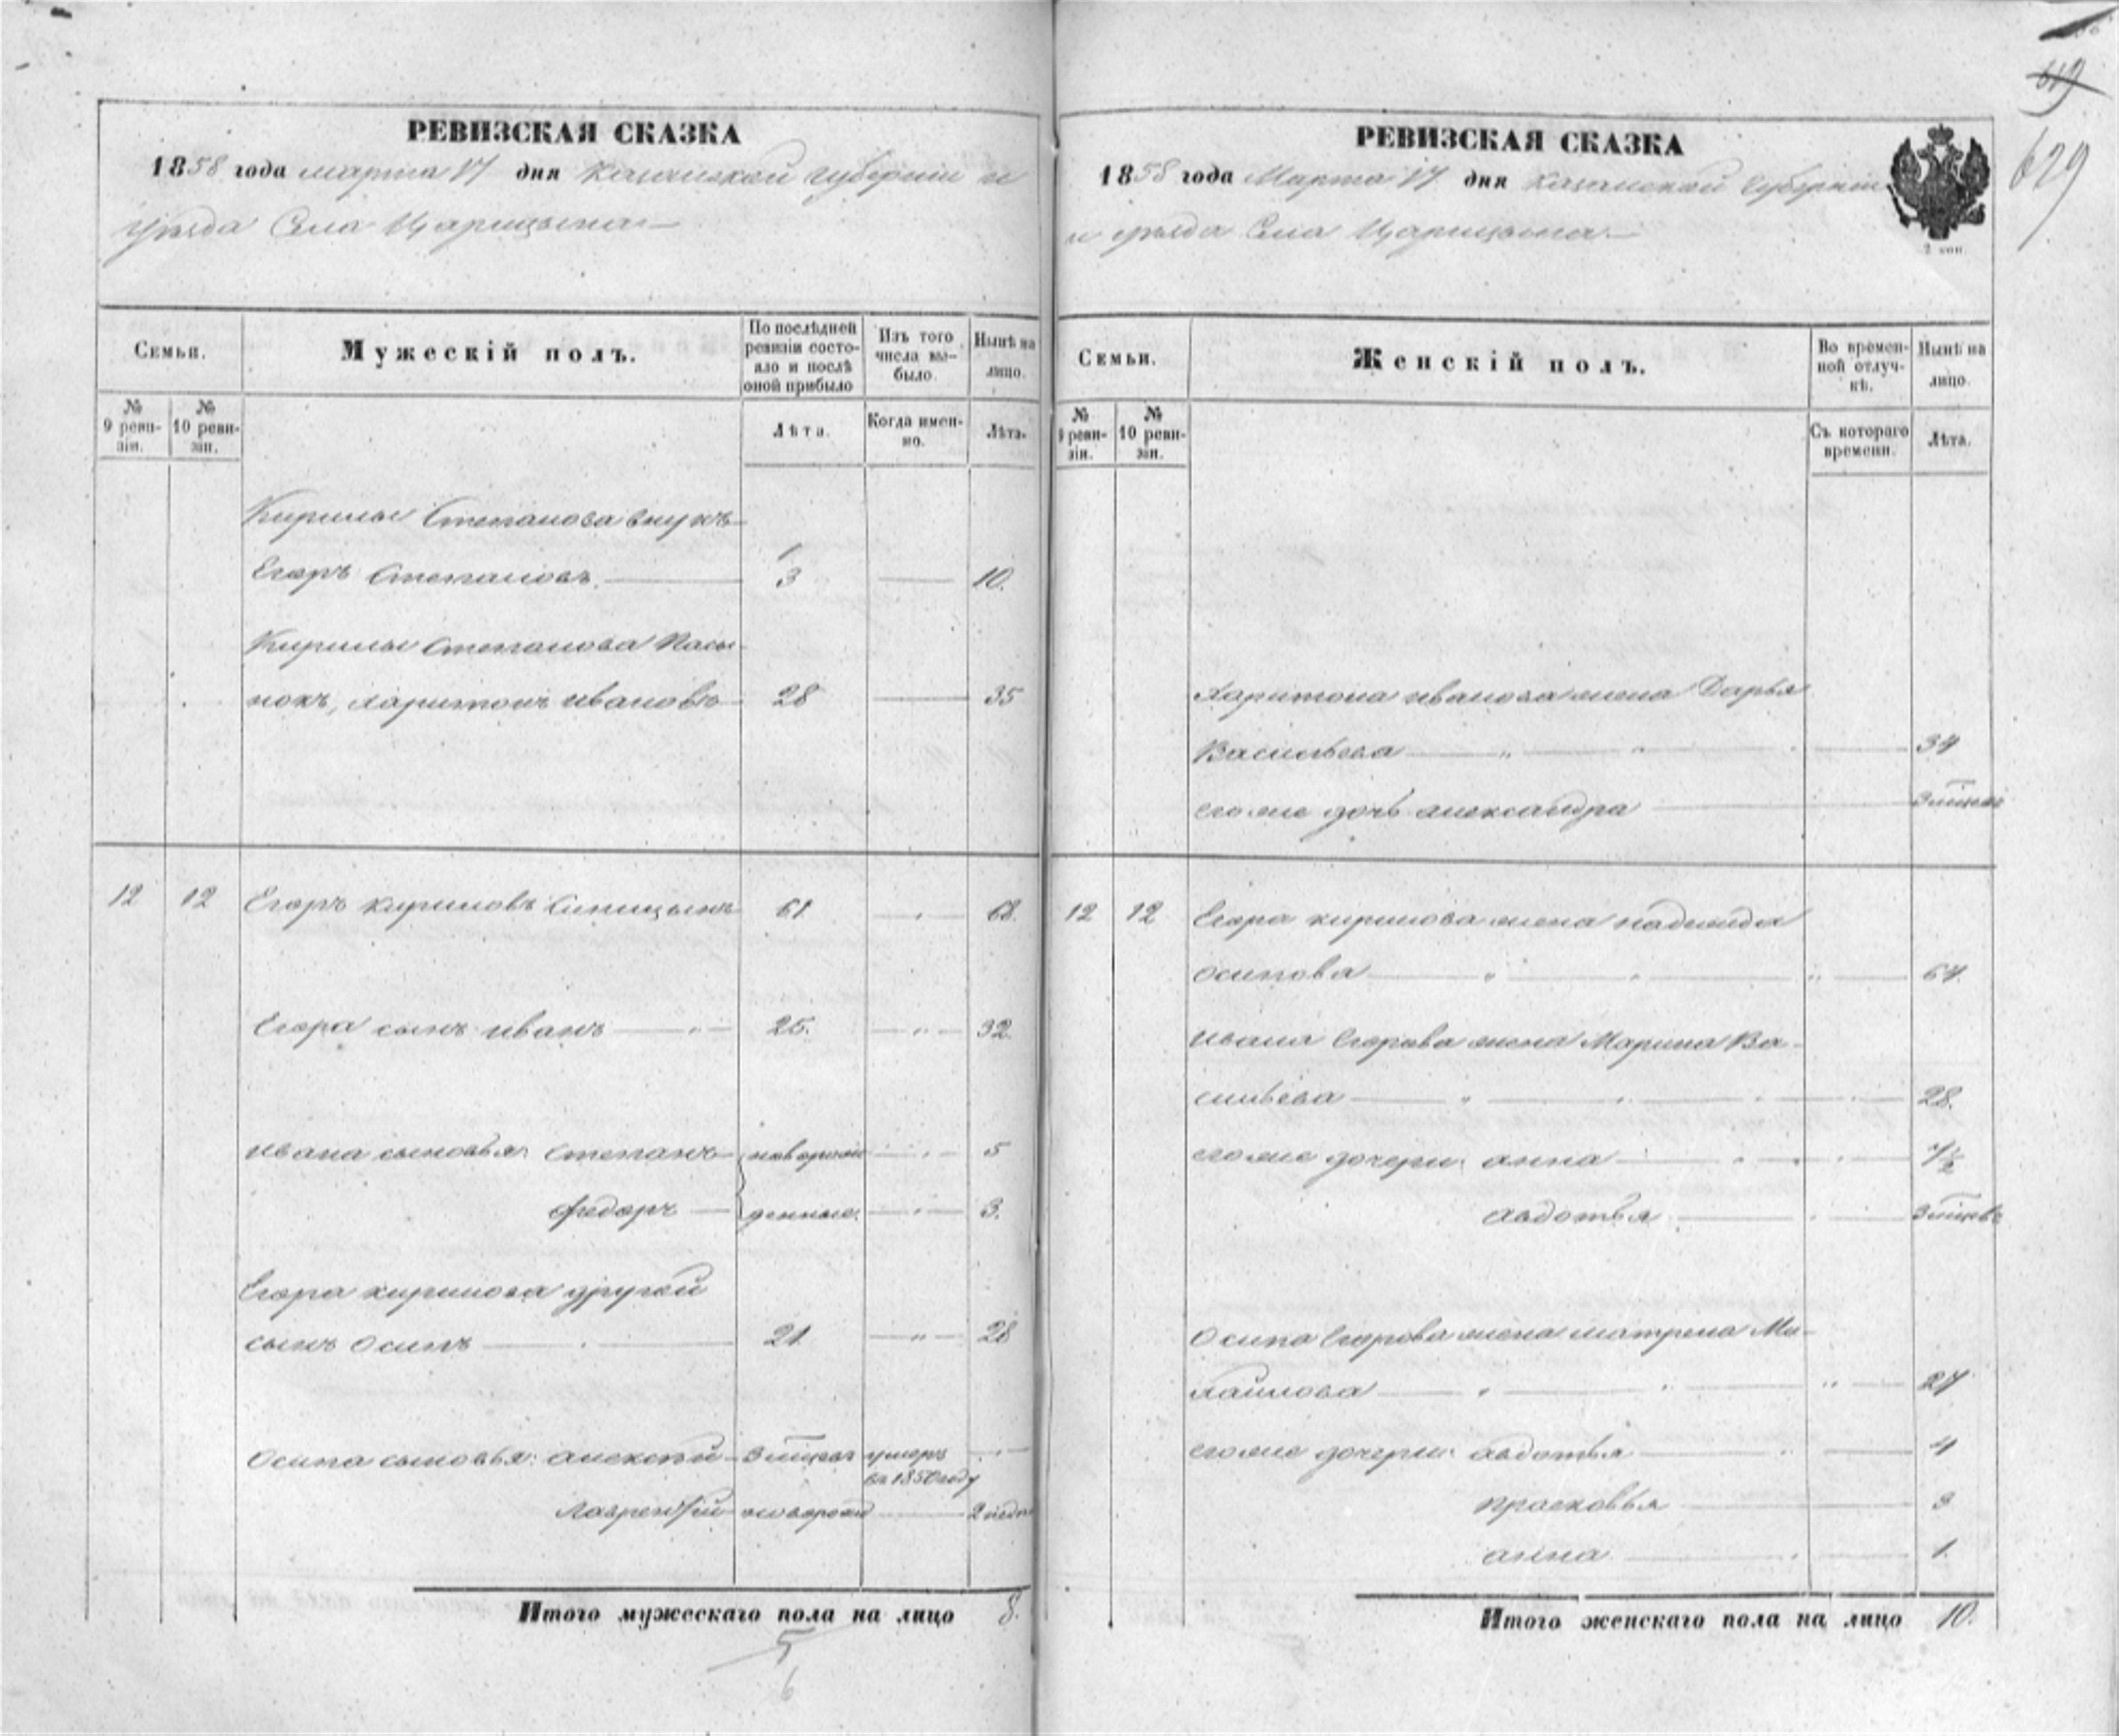 619
629
РЕВИЗСКАЯ СКАЗКА
1858 года марта 17 дня Казанской губернии и
уѣзда Села Царицына
Семьи.
Мужескій полъ.
По послѣдней ревизіи состояло и послѣ оной прибыло
Изъ того числа вы-было.
Нынѣ на лицо.
№ 9 реви-зіи.
№ 10 реви-зіи.
Лѣта.
Когда имен-но.
Лѣта.
Кирилы Степанова внукъ
Егоръ Степановъ 1 3 10.
Кирилы Степанова Пасы-
нокъ, харитонъ ивановъ 28 35
12 12 Егоръ кириловъ Синицынъ 61 68.
Егора сынъ иванъ 25. 32.
ивана сыновья Степанъ новорож 5
федоръ денные. 3.
Егора кирилова другой
сынъ осипъ 21 28
осипа сыновья: алексѣй 3 мѣсец умеръ
въ 1850 году
Лаврентій новорож 2 недел
Итого мужескаго пола на лицо 8.
5
6
РЕВИЗСКАЯ СКАЗКА
1858 года Марта 17 дня Казанской Губернии
и уѣзда Села Царицына
2 коп
Семьи.
Женскій полъ.
Во времен-ной отлуч-кѣ.
Нынѣ на лицо.
№ 9 реви-зіи.
№ 10 реви-зіи.
Съ котораго времени.
Лѣта.
Харитона иванова жена Дарья
Васильева 34
его же дочь александра 3 мѣсец
12 12 Егора кирилова жена надежда
осипова 64.
ивана Егорова жена Марина Ва-
сильева 28.
его же дочери: анна 7½
авдотья 3 мѣсев
осипа Егорова жена матрена Ми-
хайлова 27
его же дочери: авдотья 4
прасковья 3
анна 1.
Итого женскаго пола на лицо 10.